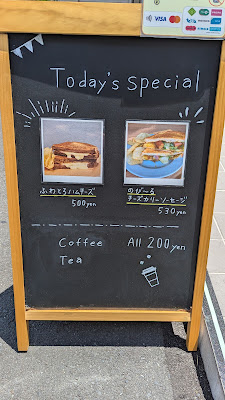 VISA
Today's Special
ふわとろハムチーズ
500yen
のび〜る
チーズカリーソーセージ
530yen
Coffee All 200yen
Tea